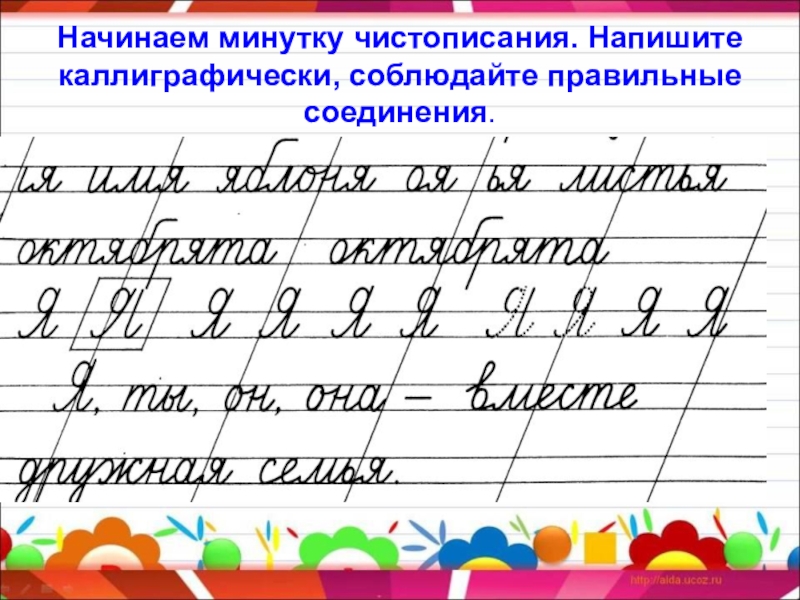 Начинаем минутку чистописания. Напишите
каллиграфически, соблюдайте правильные
соединения.
ия имя яблоня оя ья листья
октябрята октябрята
Я Я Я Я Я Я Я Я Я Я
Я, ты, он, она – вместе
дружная семья.
http://aida.ucoz.ru